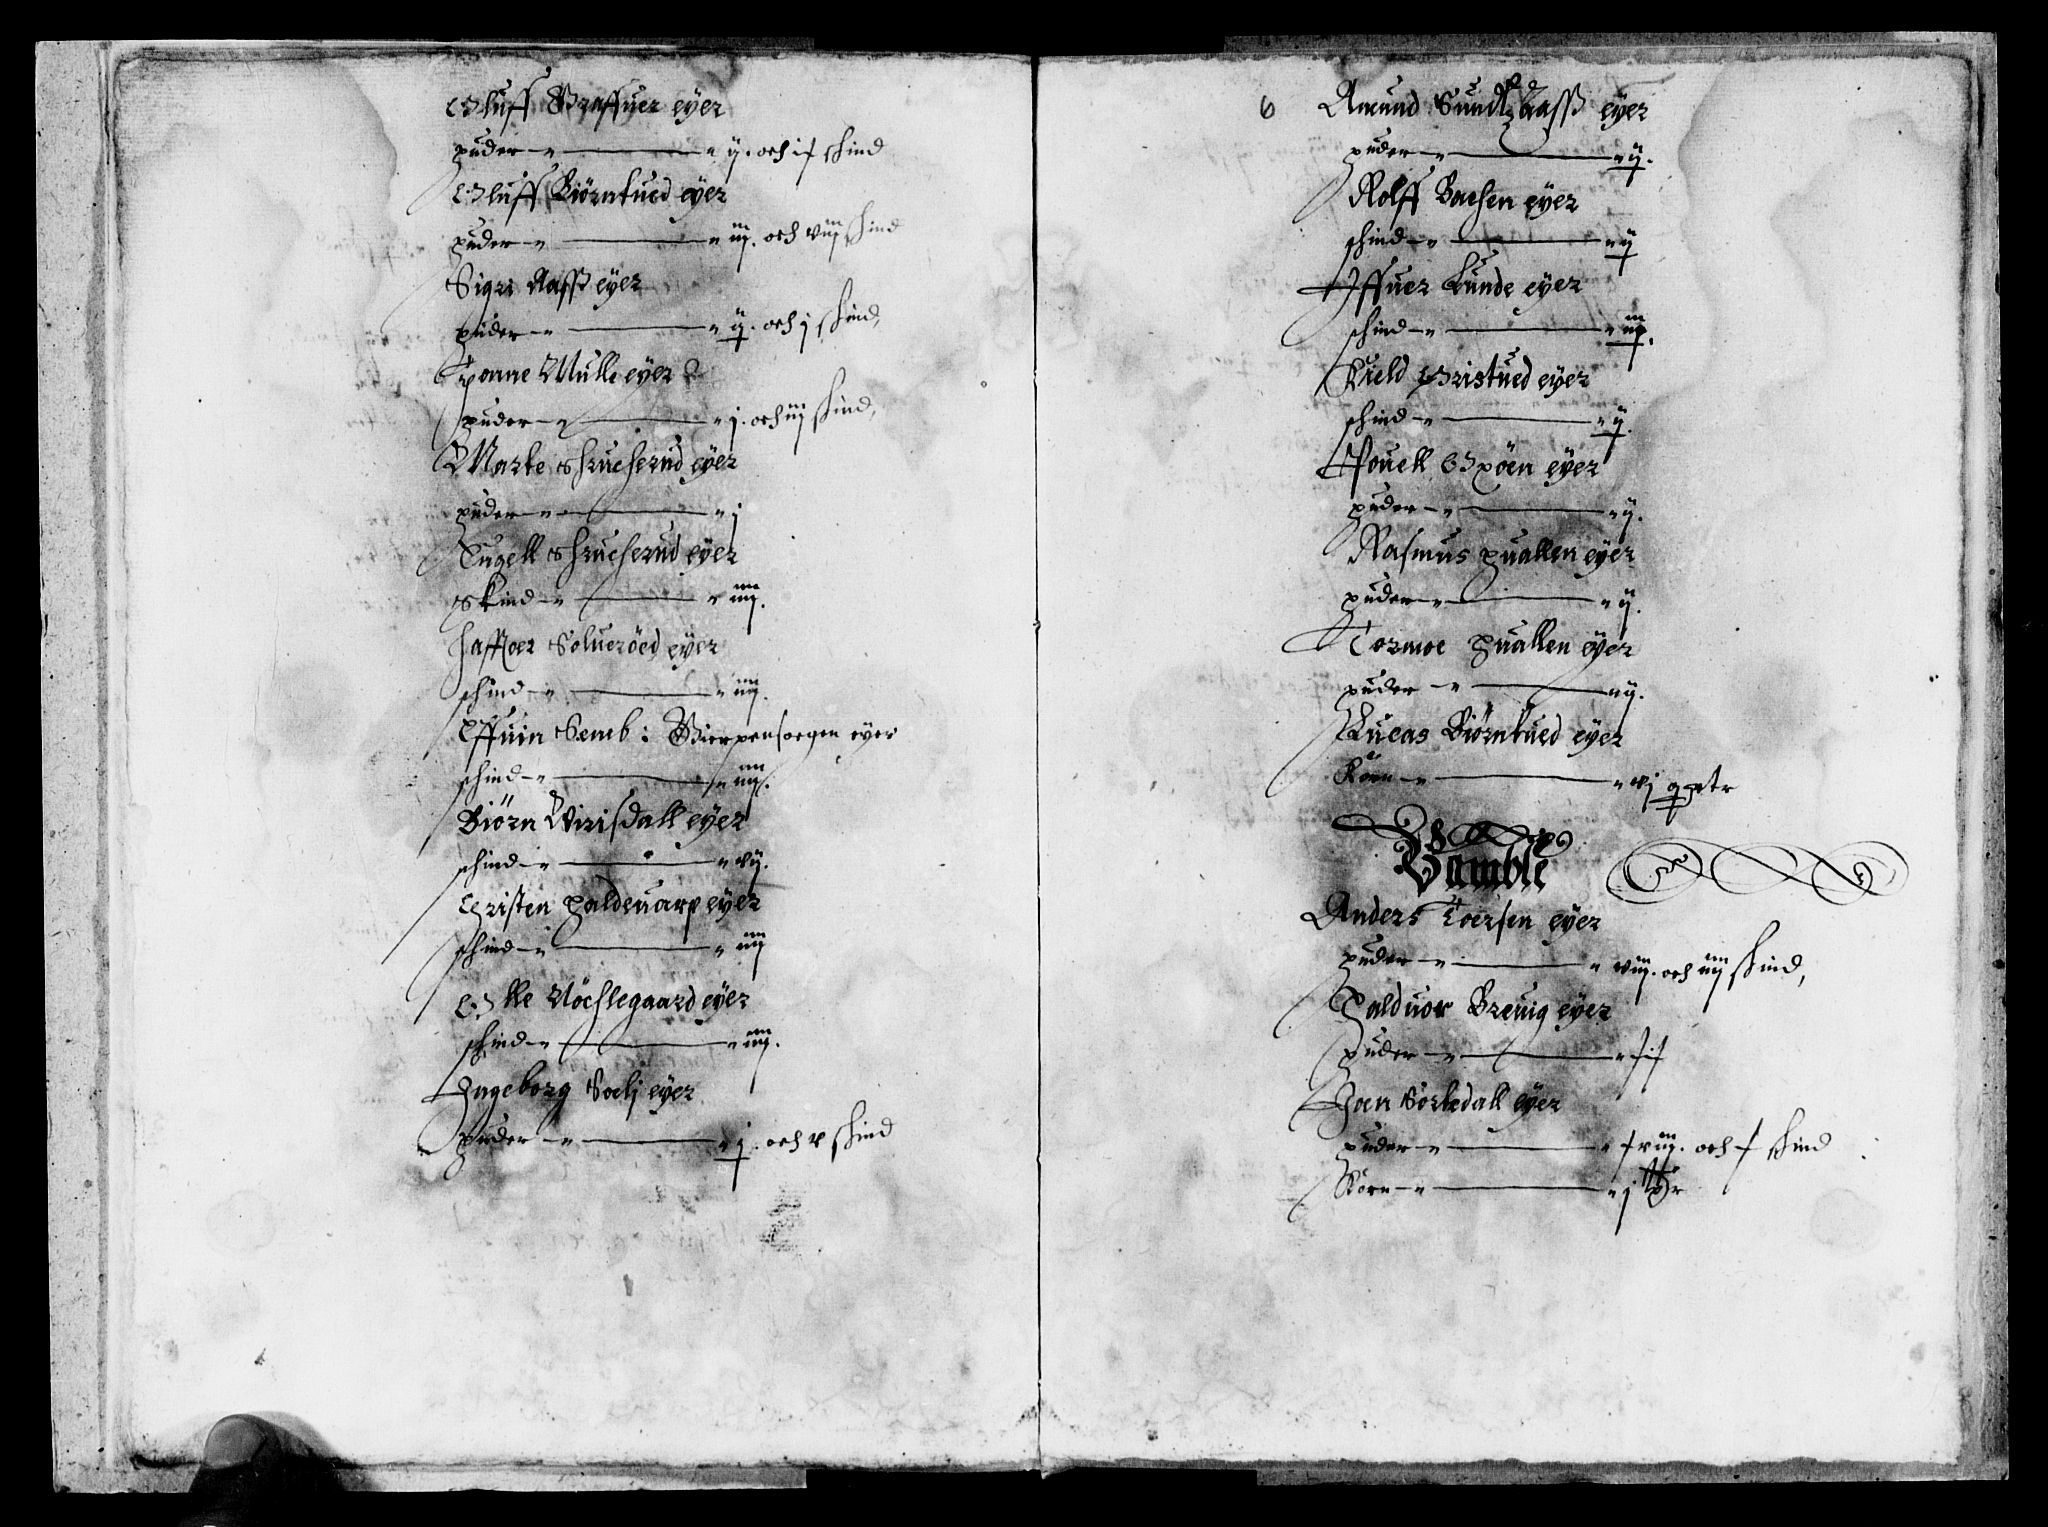 Oluff Graffuer eyer
huder – ij. och if skind
Oluff Biørntued eyer
huder – iij. och viij skind
Sigri Aass eyer
huder – ij. och j skind,
Tponne Mulle eyer
huder – j. och iij skind,
Marte Skrucherud eyer
huder – j
Tugell Skrucherud eyer
Skind – iiij.
Haffoer Soluerøed eyer
schind – iiij.
Effuin Semb: Gierpensoegen eyer
schind – iiij.
Biørn Virisdall eyer
schind – vij.
Christen Haldeuarp eyer
schind – iiij
Olle Nøchlegaard eyer
schind – iiij.
Ingeborg Soelj eyer
huder – j. och v skind
6 Amund Sundhaass eyer
huder – ij.
Rolff Bachen eyer
schind – ij
Iffuer Lunde eyer
schind – iij.
Kield Gristued eyer
schind – ij.
Pouell Opøen eyer
huder – ij.
Rasmus Huallen eyer
huder – ij.
Tormoe Huallen eyer
huder – ij.
Lucas Biørntued eyer
Korn – vj
Bamble
Anders Toersen eyer
huder – viij. och iiij skind,
Halduor Breuig eyer
huder – fif
Joen Sortedall eyer
huder – fviij. och f skind
Korn – j